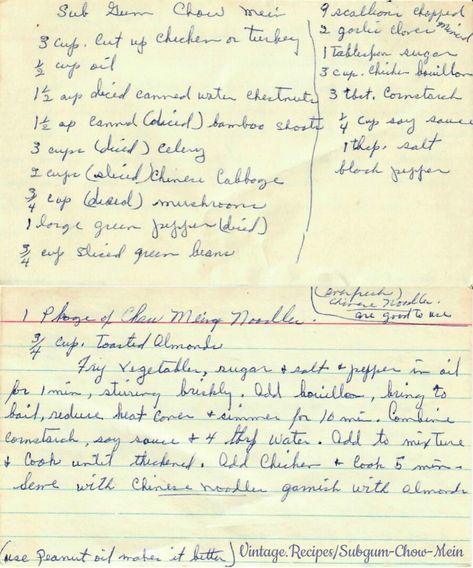 Sub Gum Chow Mein
3 cup. cut up chicken or turkey
1/2 cup oil
1 1/2 cup diced canned water chestnuts
1 1/2 cup canned (diced) bamboo shoots
3 cups (diced) celery
2 cups (sliced) Chinese Cabbage
3/4 cup (diced) mushrooms
1 large green pepper (diced)
3/4 cup sliced green beans
9 scallions chopped
2 garlic cloves minced
1 Tablespoon sugar
3 cup. chicken bouillon
3 tbst. Cornstarch
1/4 cup soy sauce
1 thsp. salt
black pepper
(everfresh)
Chinese Noodles.
are good to use
1 Pkage of Chow Meing Noodles.
3/4 cup. Toasted Almonds
Fry vegetables, sugar & salt & pepper in oil
for 1 min, stirring briskly. Add bouillon, bring to
boil, reduce heat cover & simmer for 10 min. Combine
cornstarch, soy sauce & 4 tbsp water. Add to mixture
& Cook until thickened. Add Chicken & Cook 5 min.
Serve with Chinese noodles garnish with almonds
(use Peanut oil makes it better)
Vintage.Recipes/Subgum-Chow-Mein